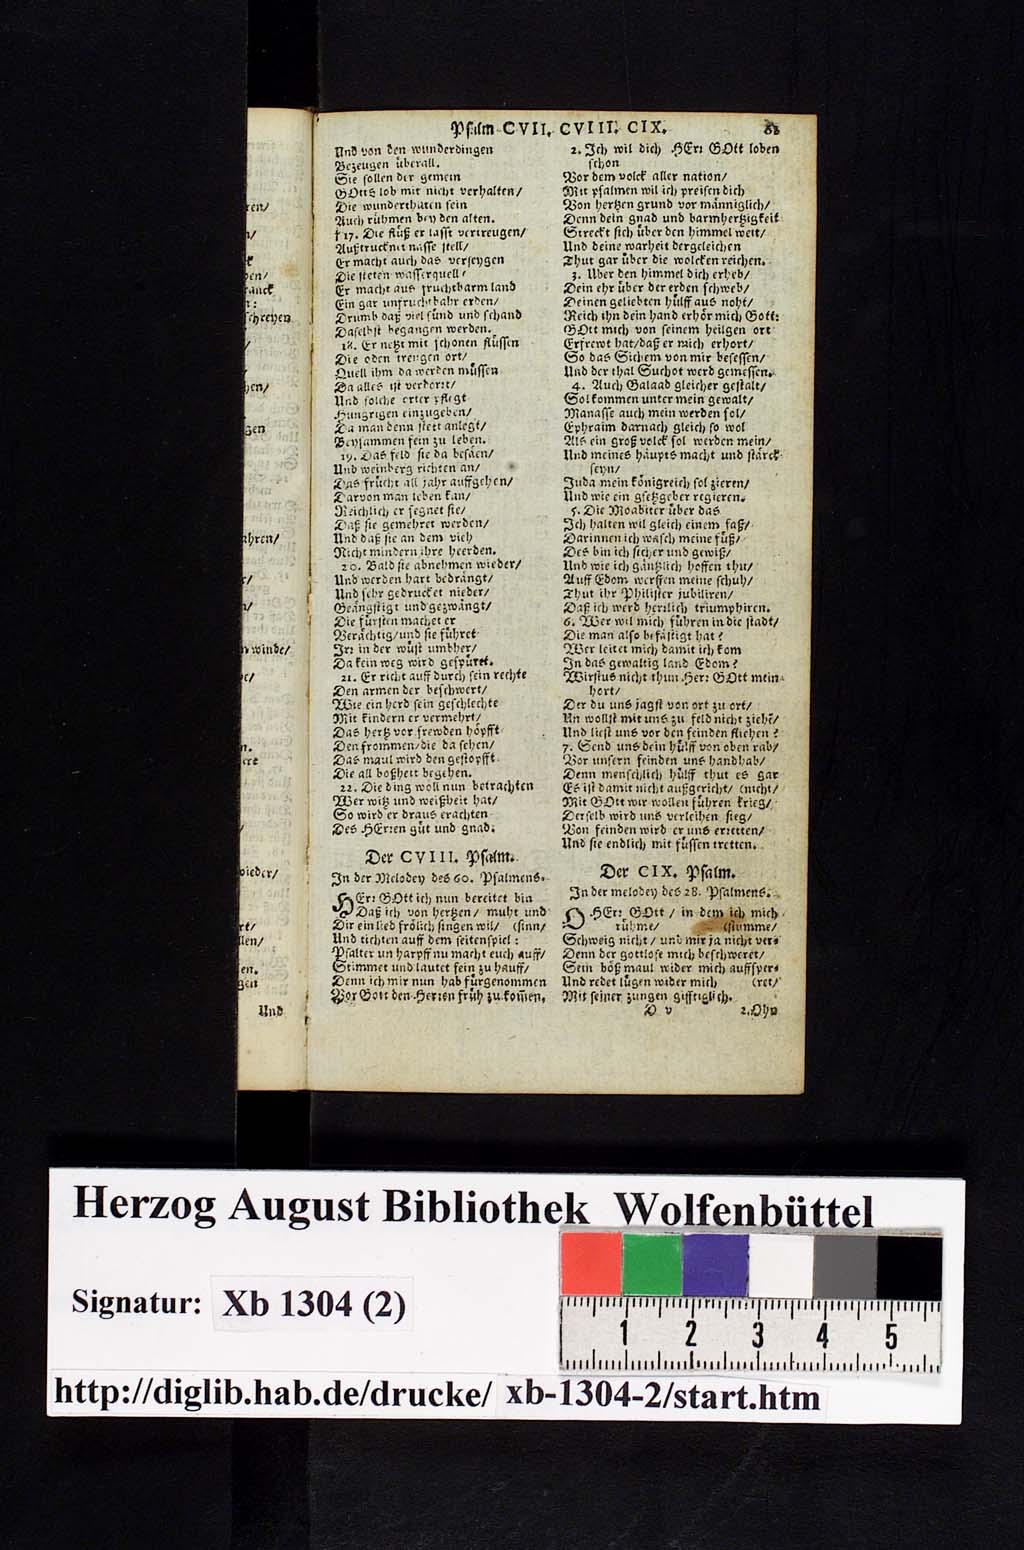 Psalm CVII. CVIII. CIX.
Und von den wunderdingen
Bezeugen überall.
Sie sollen der gemein
GOtts lob mit nicht verhalten/
Die wunderthaten sein
Auch rühmen bey den alten.
†17. Die flüß er lasst vertreugen/
Außtrucknet nasse stell/
Er macht auch das verseygen
Die steten wasserquell/
Er macht aus fruchtbarm land
Ein gar unfruchtbahr erden/
Drumb daß viel sünd und schand
Daselbst begangen werden.
18. Er netzt mit schonen flüssen
Die öden treugen ort/
Quell ihm da werden müssen
Da alles ist verdorrt/
Und solche örter pflegt
Hungrigen einzugeben/
Da man denn stett anlegt/
Beysammen fein zu leben.
19. Das feld sie da besäen/
Und weinberg richten an/
Das frücht all jahr auffgehen/
Darvon man leben kan/
Reichlich er segnet sie/
Daß sie gemehret werden/
Und daß sie an dem vieh
Nicht mindern ihre heerden.
20. Bald sie abnehmen wieder/
Und werden hart bedrängt/
Und sehr gedrucket nieder/
Geängstigt und gezwängt/
Die fürsten machet er
Verächtig/und sie führet
Irr in der wüst umbher/
Da kein weg wird gespüret.
21. Er richt auff durch sein rechte
Den armen der beschwert/
Wie ein herd sein geschlechte
Mit kindern er vermehrt/
Das hertz vor frewden höpfft
Den frommen/die da sehen/
Das maul wird den gestopfft
Die all boßheit begehen.
22. Die ding woll nun betrachten
Wer witz und weißheit hat/
So wird er draus erachten
Des HErren güt und gnad.
Der CVIII. Psalm.
In der Melodey des 60. Psalmens.
HErr GOtt ich nun bereitet bin
Daß ich von hertzen/ muht und
Dir ein lied frölich singen wil/ (sinn/
Und tichten auff dem seitenspiel:
Psalter un harpff nu macht euch auff/
Stimmet und lautet fein zu hauff/
Denn ich mir nun hab fürgenommen
Vor Gott den Herren früh zu kom̄en.
2. Ich wil dich HErr GOtt loben
schon
Vor dem volck aller nation/
Mit psalmen wil ich preisen dich
Von hertzen grund vor männiglich/
Denn dein gnad und barmhertzigkeit
Streckt sich über den himmel weit/
Und deine warheit dergeleichen
Thut gar über die wolcken reichen.
3. Uber den himmel dich erheb/
Dein ehr über der erden schweb/
Deinen geliebten hülff aus noht/
Reich ihn dein hand erhör mich Gott:
GOtt mich von seinem heilgen ort
Erfrewt hat/daß er mich erhort/
So das Sichem von mir besessen/
Und der thal Suchot werd gemessen.
4. Auch Galaad gleicher gestalt/
Sol kommen unter mein gewalt/
Manasse auch mein werden sol/
Ephraim darnach gleich so wol
Als ein groß volck sol werden mein/
Und meines häupts macht und stärck
seyn/
Juda mein königreich sol zieren/
Und wie ein gsetzgeber regieren.
5. Die Moabiter über das
Ich halten wil gleich einem faß/
Darinnen ich wasch meine füß/
Des bin ich sicher und gewiß/
Und wie ich gäntzlich hoffen thu/
Auff Edom werffen meine schuh/
Thut ihr Philister jubiliren/
Daß ich werd herrlich triumphiren.
6. Wer wil mich führen in die stadt/
Die man also befästigt hat?
Wer leitet mich damit ich kom
In das gewaltig land Edom?
Wirstus nicht thun Herr GOtt mein
hort/
Der du uns jagst von ort zu ort/
Un wollst mit uns zu feld nicht ziehē/
Und liest uns vor den feinden fliehen?
7. Send uns dein hülff von oben rab/
Vor unsern feinden uns handhab/
Denn menschlich hülff thut es gar
Es ist damit nicht außgericht/ (nicht/
Mit GOtt wir wollen führen krieg/
Derselb wird uns verleihen sieg/
Von feinden wird er uns erretten/
Und sie endlich mit füssen tretten.
Der CIX. Psalm.
In der melodey des 28. Psalmens.
O HErr GOtt / in dem ich mich
rühme/ (stumme/
Schweig nicht / und mir ja nicht ver-
Denn der gottlose mich beschweret/
Sein böß maul wider mich auffsper-
Und redet lügen wider mich (ret/
Mit seiner zungen gifftiglich.
D v 2. Ohn
ren/
schreyen
hren/
winde/
wieder/
Und
Herzog August Bibliothek Wolfenbüttel
Signatur: Xb 1304 (2)
1 2 3 4 5
http://diglib.hab.de/drucke/ xb-1304-2/start.htm